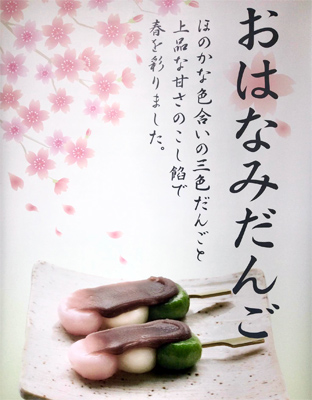 おはなみだんご
ほのかな色合いの三色だんごと
上品な甘さのこし餡で
春を彩りました。